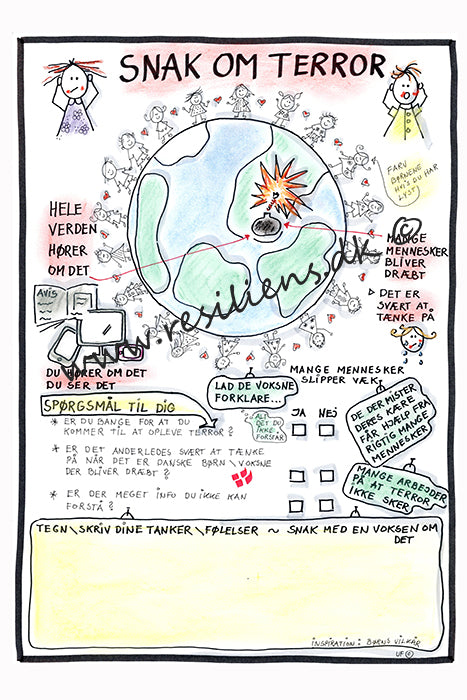 SNAK OM TERROR
FARV
BØRNENE
HVIS DU HAR
LYST!
HELE
VERDEN
HØRER
OM DET
©
MANGE
MENNESKER
BLIVER
DRÆBT
▷ DET ER
SVÆRT AT
TÆNKE PÅ
AVIS
www.resiliens.dk
DU HØRER OM DET
DU SER DET
LAD DE VOKSNE
FORKLARE...
MANGE MENNESKER
SLIPPER VÆK
DE DER MISTER
DERES KÆRE
FÅR HJÆLP FRA
RIGTIG MANGE
MENNESKER
SPØRGSMÅL TIL DIG
ALT
DET DU
IKKE
FORSTÅR
JA NEJ
* ER DU BANGE FOR AT DU
KOMMER TIL AT OPLEVE TERROR?
* ER DET ANDERLEDES SVÆRT AT TÆNKE
PÅ NÅR DET ER DANSKE BØRN\VOKSNE
DER BLIVER DRÆBT?
* ER DER MEGET INFO DU IKKE KAN
FORSTÅ?
MANGE ARBEJDER
PÅ AT TERROR
IKKE SKER
TEGN\SKRIV DINE TANKER\FØLELSER ~ SNAK MED EN VOKSEN OM
DET
INSPIRATION: BØRNS VILKÅR
UF©